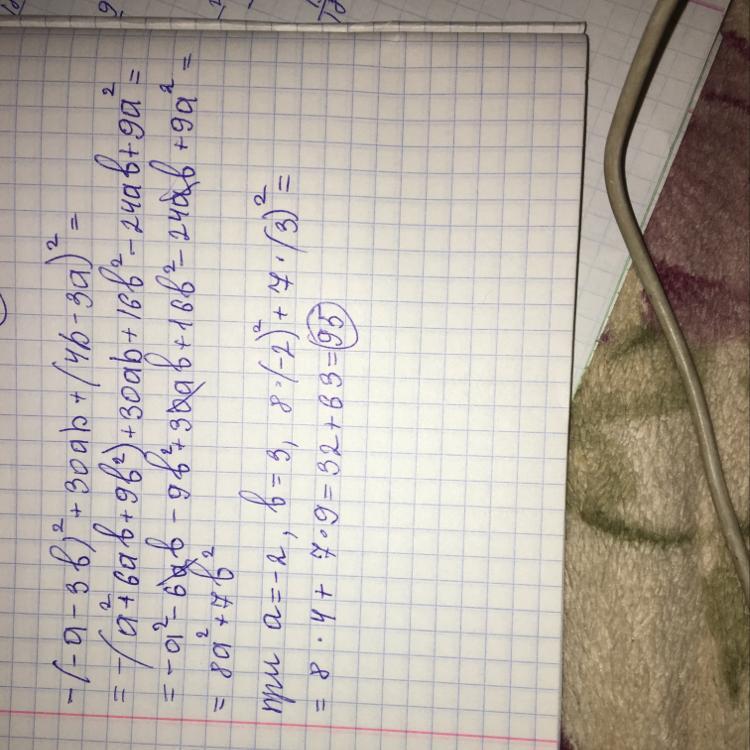 -(-a-3b)²+30ab+(4b-3a)²=
=-(a²+6ab+9b²)+30ab+16b²-24ab+9a²=
=-a²-6ab-9b²+30ab+16b²-24ab+9a²=
=8a²+7b²
при a=-2, b=3, 8·(-2)²+7·(3)²=
=8·4+7·9=32+63=95